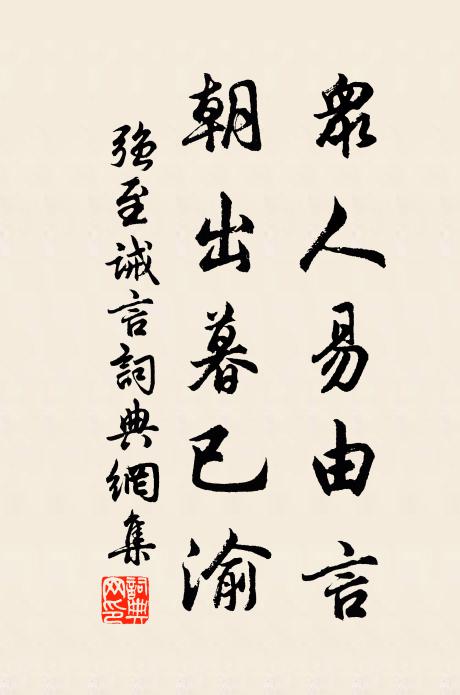 眾人易由言
朝出暮已渝
強至誡言詞典網集
詞典网印